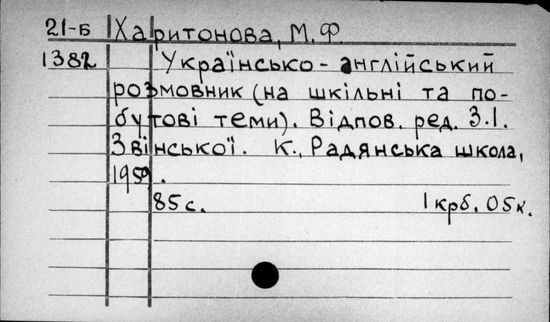 21-Б Харитонова, М.Ф.
1382 Українсько-англійський
розмовник (на шкільні та по-
бутові теми). Відпов. ред. З.І.
Звінської. К., Радянська школа,
1959.
85 с. 1 крб. 05 к.